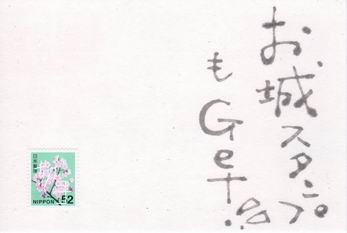 お城スタンプ
もGet!!
日本郵便
NIPPON 52